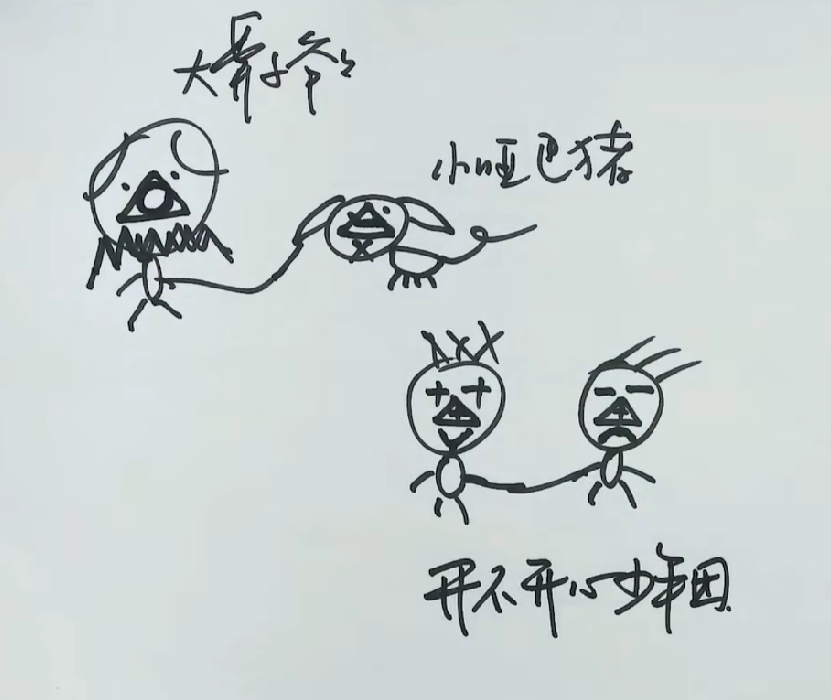 大鼻子爷爷
小哑巴猪
开不开心少年团